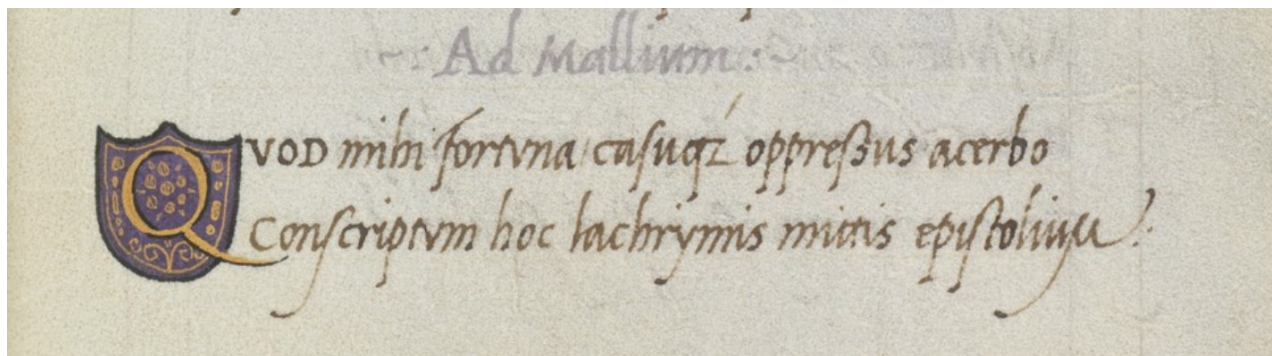 ~: Ad Mallium :~
QVOD mihi fortvna casuqꝫ oppressus acerbo
Conscriptvm hoc lachrymis mittis epistolium: